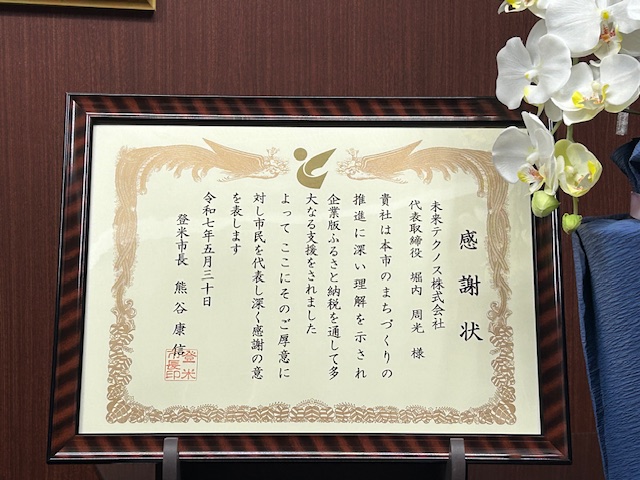 感謝状
未来テクノス株式会社
代表取締役 堀内 周光 様
貴社は本市のまちづくりの
推進に深い理解を示され
企業版ふるさと納税を通して多
大なる支援をされました
よって ここにそのご厚意に
対し市民を代表し深く感謝の意
を表します
令和七年五月三十日
登米市長 熊谷康信
登米市長印